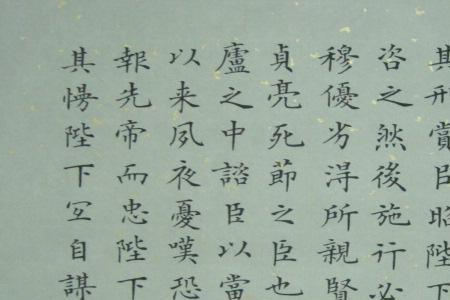 其刑賞臣昭陛下
咨之然後施行必
穆優劣得所親賢
貞亮死節之臣也
廬之中諮臣以當
以来夙夜憂嘆恐
報先帝而忠陛下
其慢陛下宜自謀